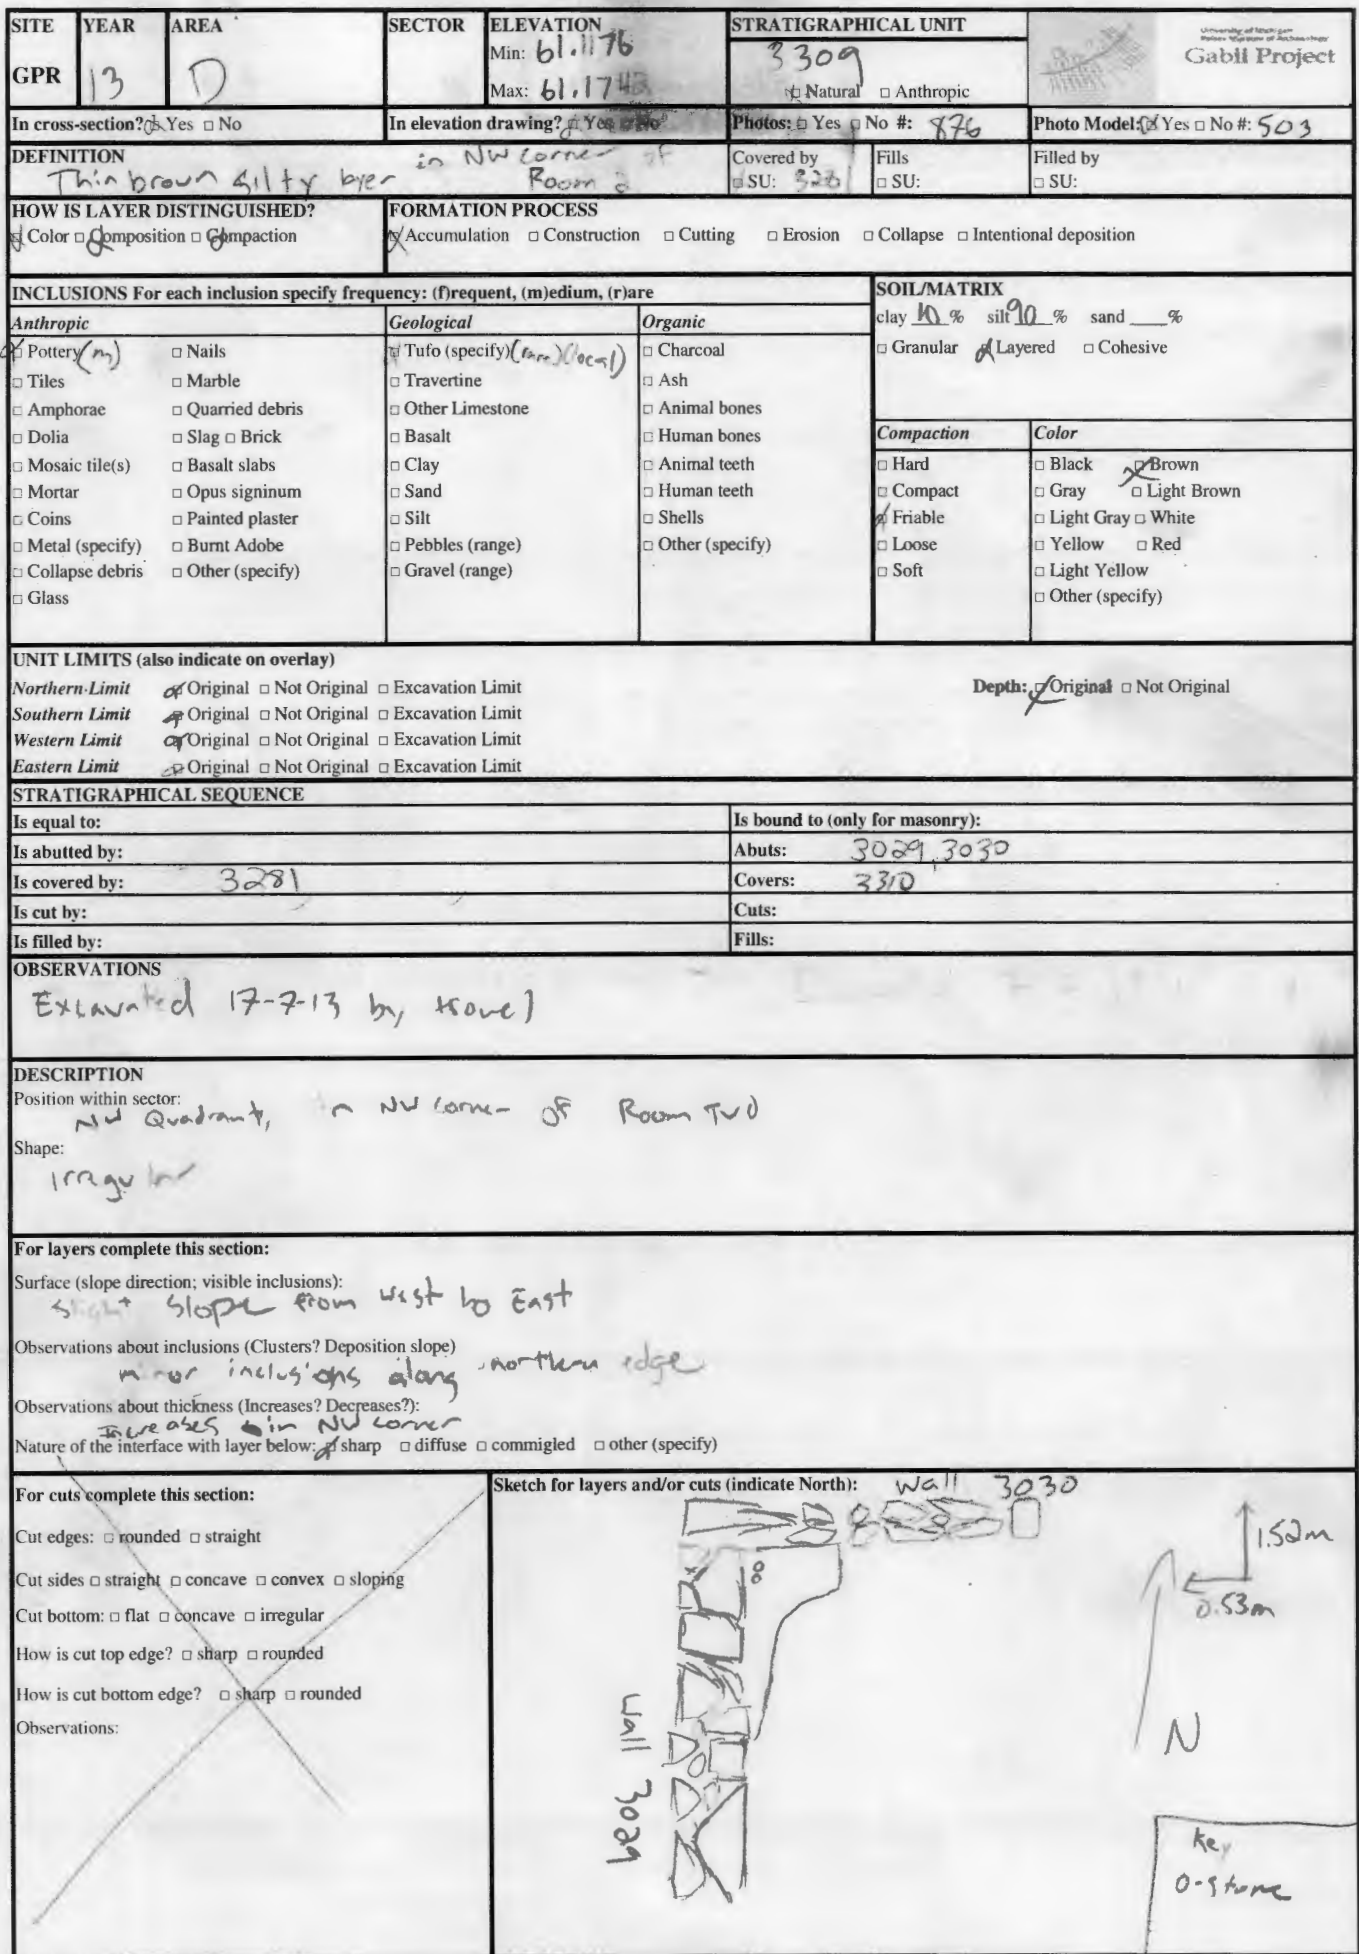 SITE YEAR AREA SECTOR ELEVATION STRATIGRAPHICAL UNIT
GPR 13 D Min: 61.1176 3309
Max: 61.174 □ Natural □ Anthropic
University of Michigan
Kelsey Museum of Archaeology
Gabii Project
In cross-section? □ Yes □ No In elevation drawing? □ Yes □ No Photos: □ Yes □ No #: 876 Photo Model: □ Yes □ No #: 503
DEFINITION
Thin brown silty layer in NW corner of Room 2
Covered by □ SU: 3281 Fills □ SU: Filled by □ SU:
HOW IS LAYER DISTINGUISHED?
□ Color □ Composition □ Compaction
FORMATION PROCESS
□ Accumulation □ Construction □ Cutting □ Erosion □ Collapse □ Intentional deposition
INCLUSIONS For each inclusion specify frequency: (f)requent, (m)edium, (r)are
Anthropic
□ Pottery (m) □ Nails
□ Tiles □ Marble
□ Amphorae □ Quarried debris
□ Dolia □ Slag □ Brick
□ Mosaic tile(s) □ Basalt slabs
□ Mortar □ Opus signinum
□ Coins □ Painted plaster
□ Metal (specify) □ Burnt Adobe
□ Collapse debris □ Other (specify)
□ Glass
Geological
□ Tufo (specify) (rare) (local)
□ Travertine
□ Other Limestone
□ Basalt
□ Clay
□ Sand
□ Silt
□ Pebbles (range)
□ Gravel (range)
Organic
□ Charcoal
□ Ash
□ Animal bones
□ Human bones
□ Animal teeth
□ Human teeth
□ Shells
□ Other (specify)
SOIL/MATRIX
clay 10 % silt 90 % sand ___%
□ Granular □ Layered □ Cohesive
Compaction
□ Hard
□ Compact
□ Friable
□ Loose
□ Soft
Color
□ Black □ Brown
□ Gray □ Light Brown
□ Light Gray □ White
□ Yellow □ Red
□ Light Yellow
□ Other (specify)
UNIT LIMITS (also indicate on overlay)
Northern Limit □ Original □ Not Original □ Excavation Limit Depth: □ Original □ Not Original
Southern Limit □ Original □ Not Original □ Excavation Limit
Western Limit □ Original □ Not Original □ Excavation Limit
Eastern Limit □ Original □ Not Original □ Excavation Limit
STRATIGRAPHICAL SEQUENCE
Is equal to: Is bound to (only for masonry):
Is abutted by: Abuts: 3029, 3030
Is covered by: 3281 Covers: 3310
Is cut by: Cuts:
Is filled by: Fills:
OBSERVATIONS
Excavated 17-7-13 by trowel
DESCRIPTION
Position within sector:
NW Quadrant, in NW corner of Room Two
Shape:
Irregular
For layers complete this section:
Surface (slope direction; visible inclusions):
Slight slope from West to East
Observations about inclusions (Clusters? Deposition slope)
minor inclusions along northern edge
Observations about thickness (Increases? Decreases?):
Increases in NW corner
Nature of the interface with layer below: □ sharp □ diffuse □ commigled □ other (specify)
For cuts complete this section:
Cut edges: □ rounded □ straight
Cut sides □ straight □ concave □ convex □ sloping
Cut bottom: □ flat □ concave □ irregular
How is cut top edge? □ sharp □ rounded
How is cut bottom edge? □ sharp □ rounded
Observations:
Sketch for layers and/or cuts (indicate North):
Wall 3030
1.52m
0.53m
N
Wall 3029
Key
0-stone